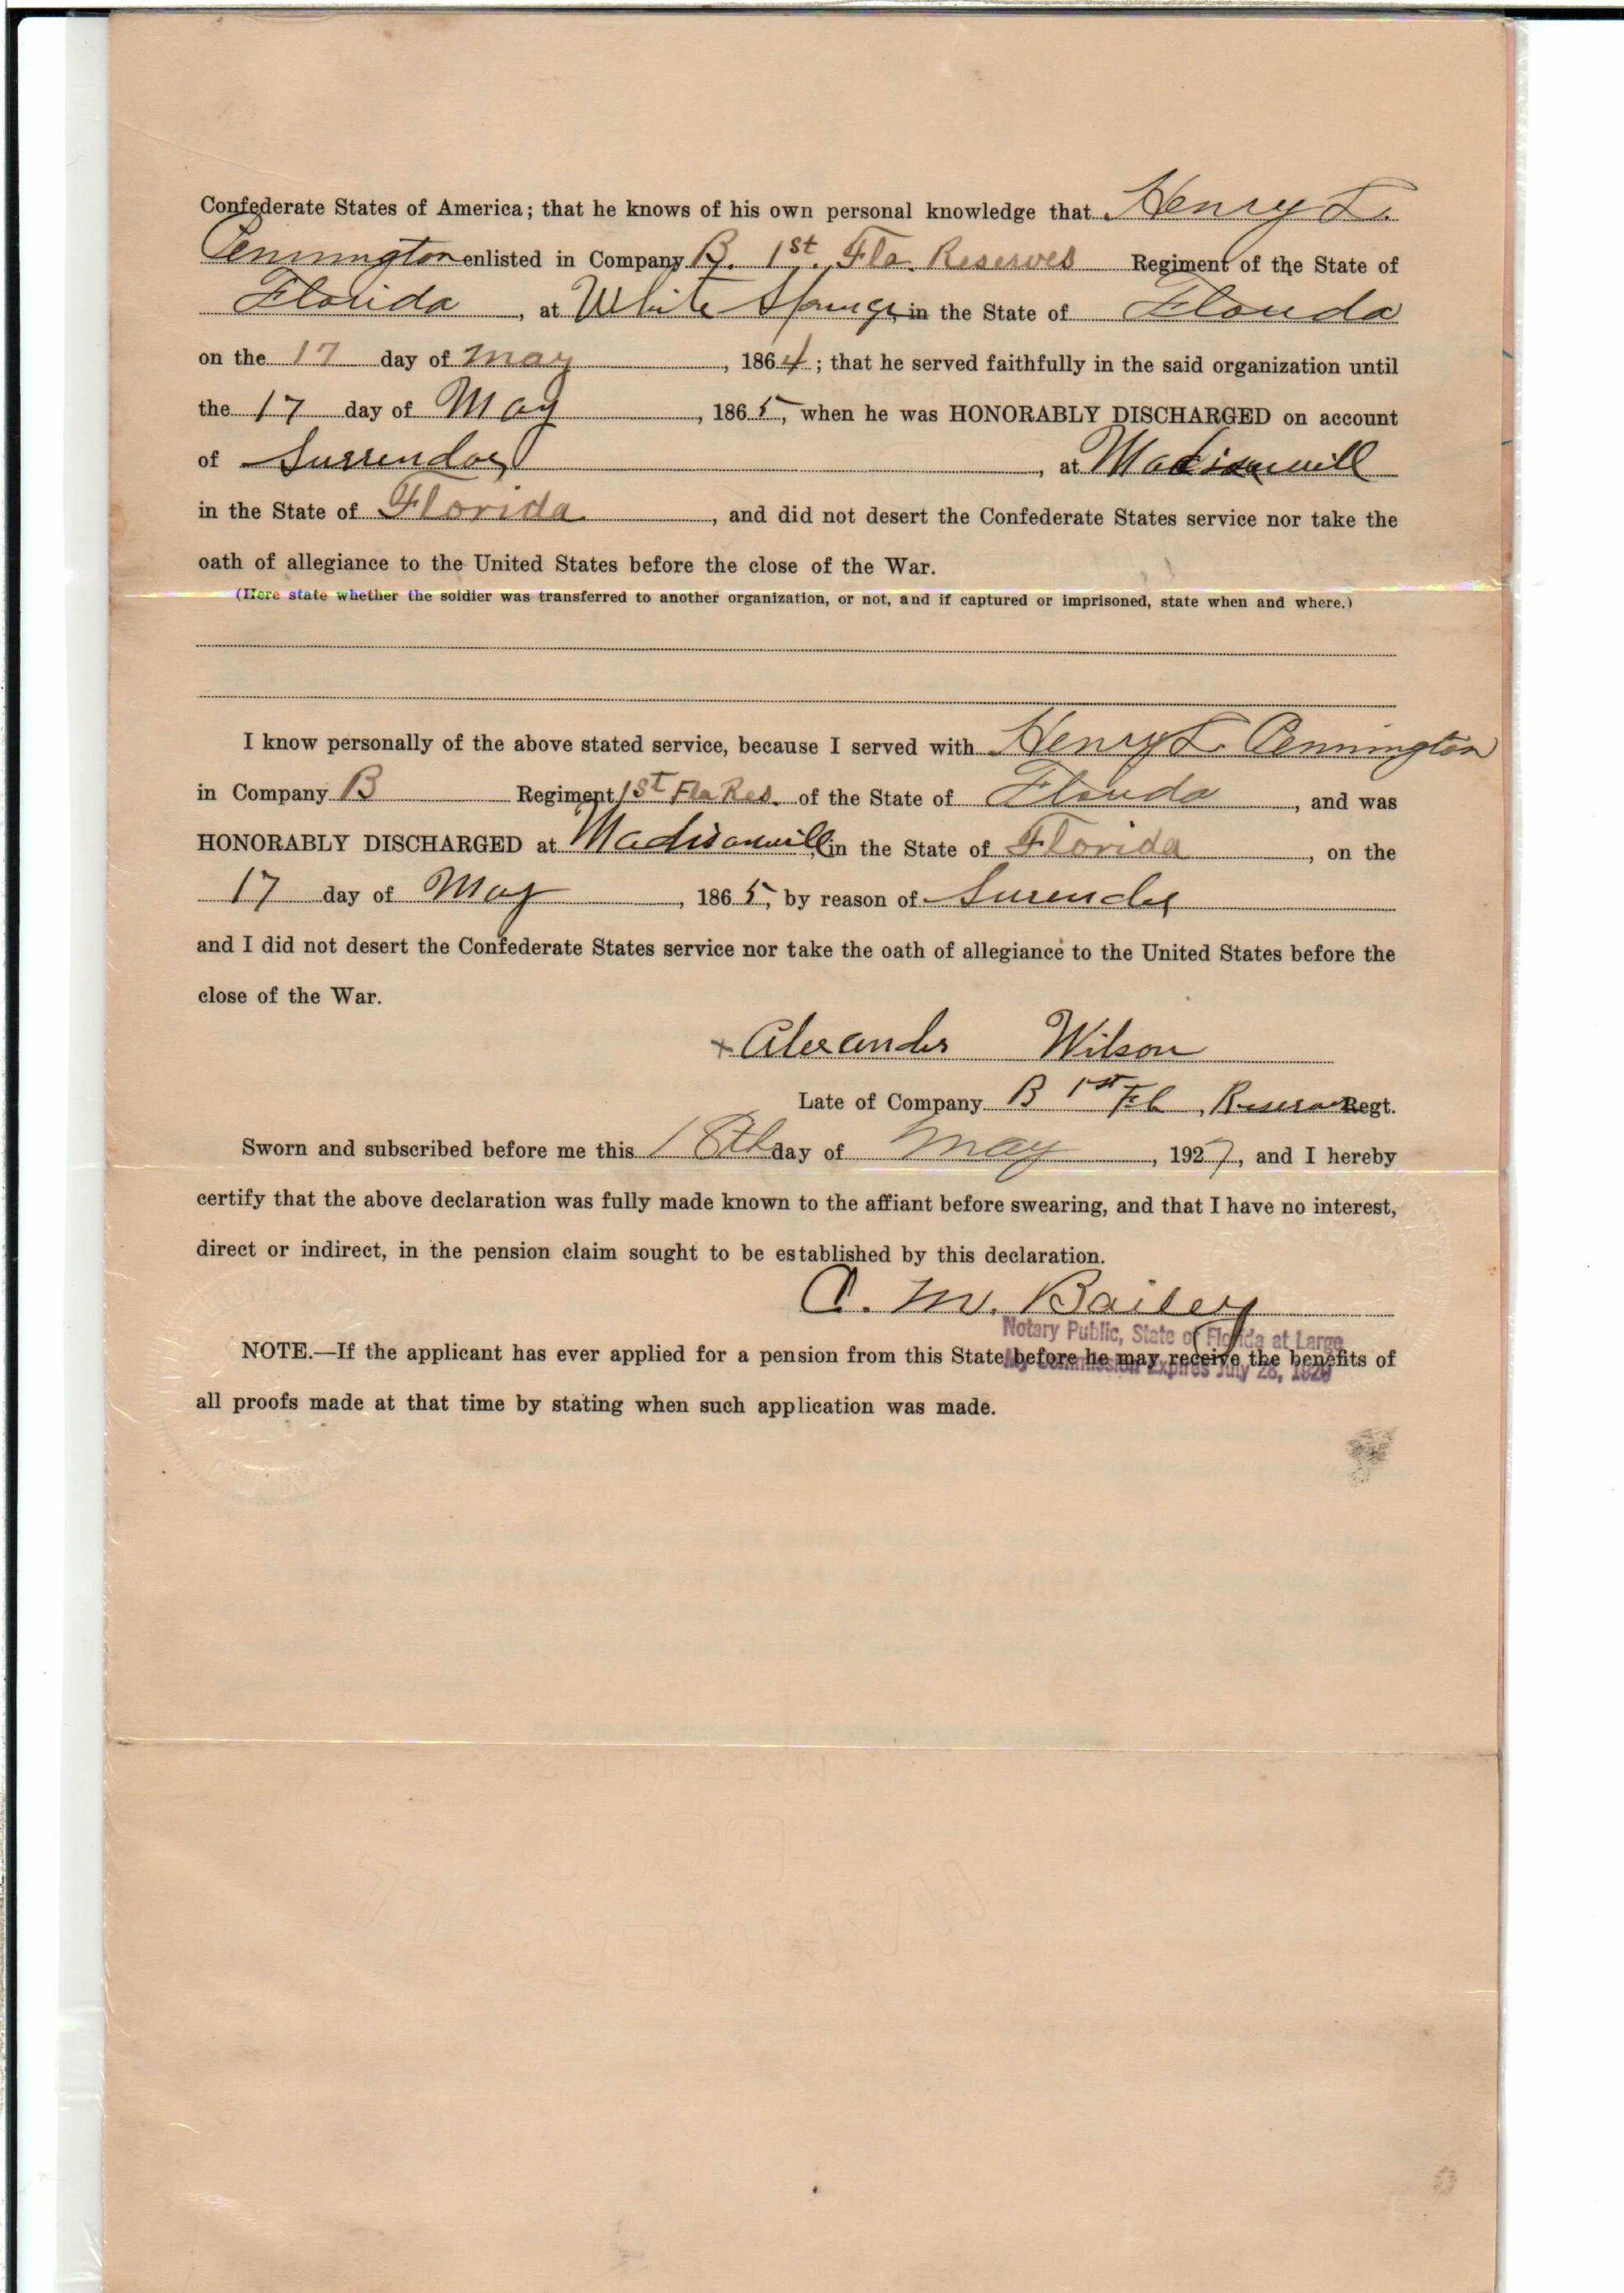 Confederate States of America; that he knows of his own personal knowledge that Henry L.
Pennington enlisted in Company B. 1st. Fla. Reserves Regiment of the State of
Florida, at White Springs, in the State of Florida
on the 17 day of May, 1864; that he served faithfully in the said organization until
the 17 day of May, 1865, when he was HONORABLY DISCHARGED on account
of Surrender, at Madisonvill
in the State of Florida, and did not desert the Confederate States service nor take the
oath of allegiance to the United States before the close of the War.
(Here state whether the soldier was transferred to another organization, or not, and if captured or imprisoned, state when and where.)
I know personally of the above stated service, because I served with Henry L. Pennington
in Company B Regiment 1st Fla Res. of the State of Florida, and was
HONORABLY DISCHARGED at Madisonvill in the State of Florida, on the
17 day of May, 1865, by reason of Surender
and I did not desert the Confederate States service nor take the oath of allegiance to the United States before the
close of the War.
x Alexander Wilson
Late of Company B 1st Fl, Reserve Regt.
Sworn and subscribed before me this 18th day of May, 1927, and I hereby
certify that the above declaration was fully made known to the affiant before swearing, and that I have no interest,
direct or indirect, in the pension claim sought to be established by this declaration.
A. M. Bailey
Notary Public, State of Florida at Large
NOTE.—If the applicant has ever applied for a pension from this State before he may receive the benefits of
My Commission Expires July 28,
all proofs made at that time by stating when such application was made.